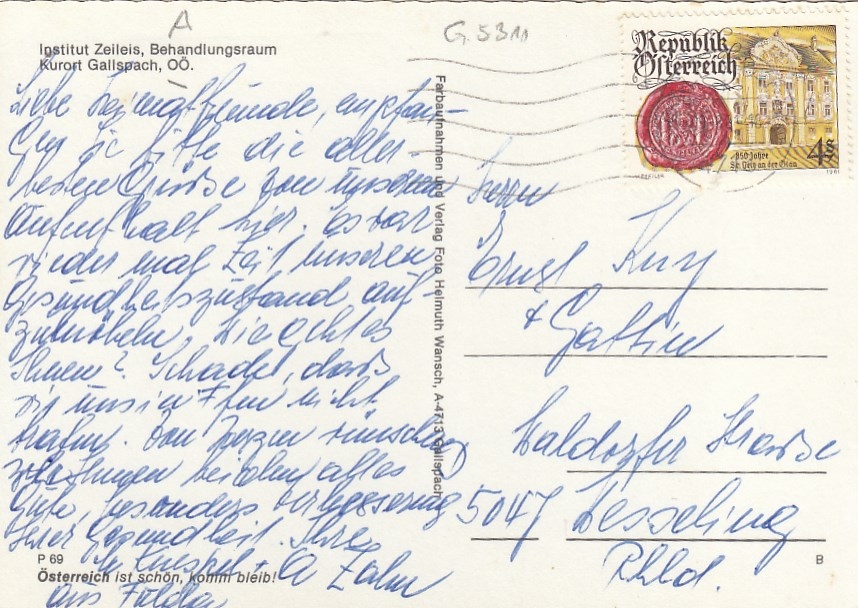 A
G. 5311
Institut Zeileis, Behandlungsraum
Kurort Gallspach, OÖ.
Republik
Österreich
850 Jahre
St. Veit an der Glan
4 S
1981
Liebe Heimatfreunde, empfan-
gen Sie bitte die aller-
besten Grüße von unserem
Aufenthalt hier. Es war
wieder mal Zeit unseren
Gesundheitszustand auf-
zumöbeln. Wie geht es
Ihnen? Schade, dass
wir uns in nicht
trafen. Von Herzen wünschen
wir Ihnen beiden alles
Gute, besonders Verbesserung
Ihrer Gesundheit. Ihre
+ A Zahn
aus Fulda
Farbaufnahmen und Verlag Foto Helmuth Wansch, A-4713 Gallspach
Herrn
Ernst Kurz
+ Gattin
Waldorfer Strasse
5047 Wesseling
Rhld.
P 69
Österreich ist schön, komm bleib!
B